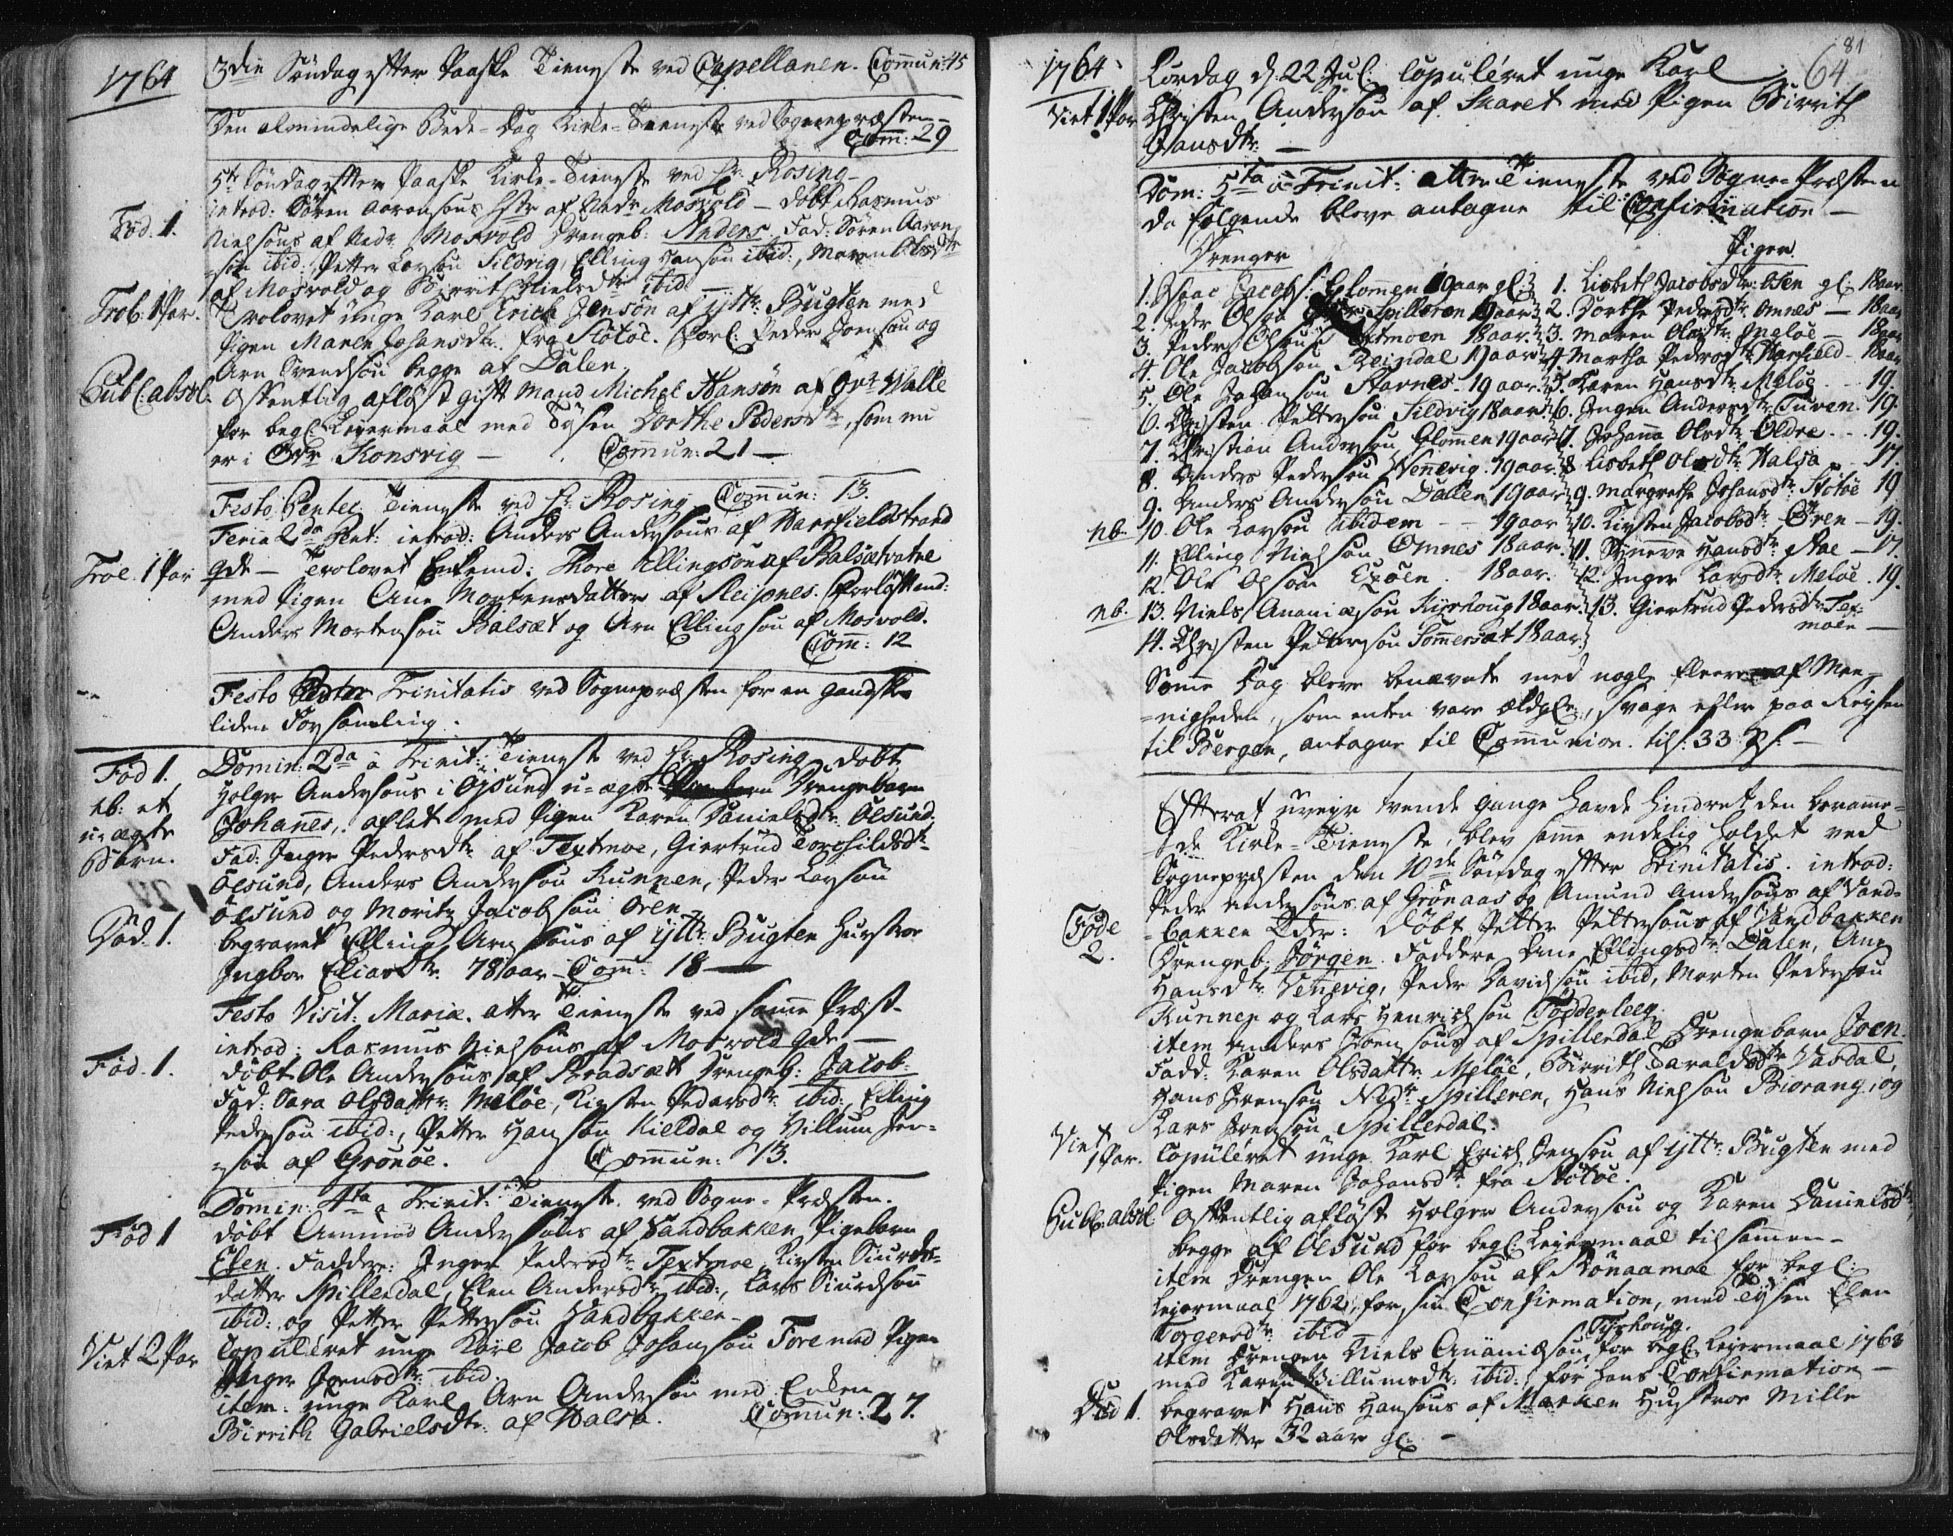 1764
3die Söndag efter Paaske Tieneste ved Capellanen. Commun: 15
Den almindelige Bede-Dag Kirke-Tieneste ved Sognepræsten
Com: 29
5te Söndag efter Paaske Kirke-Tieneste ved Hr: Rosing
introd: Sören Aaronsöns Hstr af Nedr Mosvold - döbt Rasmus
Fød. 1.
Nielsöns af Nedr Mosvold Drengeb: Anders. Fad: Sören Aaron
sön ibid: Petter Larsön Sildvig, Elling Hansön ibid:, Maren Olsdtr
af Mosvold og Birrit Nielsdtr ibid
Trol. 1 Par.
Trolovet unge Karl Erich Jensön af Ytt: Bugten med
Pigen Maren Johansdtr fra Stötöe. Forl: Peder Joensön og
Arn Svendsön begge af Dalen
Publ. absol.
Offentlig aflöst gift Mand Michel Hansön af Valle
for begl: Leiermaal med Tösen Dorthe Pedersdtr, som nu
er i Konsvig - Commun: 21 -
Festo Pentec: Tieneste ved Hr: Rosing Commun: 13.
Feria 2da Pent: introd: Anders Andersöns af Harsfieldstrand
Trol. 1 Par
Qde - Trolovet Enkemd: Thore Ellingsön af Balsætvatne
med Pigen Ane Mortensdatter af Reipnes. Forlöftmend:
Anders Mortensön Balsæt og Arn Ellingsön af Mosvold.
Com: 12
Festo Trinitatis ved Sognepræsten for en gandske
liden Forsamling.
Fød 1.
Domin: 2da à Trinit: Tieneste ved Hr Rosing, döbt
nb: et
Holger Andersöns i Ölsund u-ægte Drengebarn
u-ægte
Johanes, aflet med Pigen Karen Danielsdtr Ölsund.
Barn.
Fad: Inger Pedersdtr af Textmoe, Giertrud Torchildsdtr
Ölsund, Anders Andersön Kunnen, Peder Larsön
Ölsund og Moritz Jacobsön Ören
Död. 1.
begravet Elling Arnsöns af Ytt: Bugten Hustroe
Ingbor Eliasdtr 78 aar - Com: 18 -
Festo Visit: Mariæ. atter Tieneste ved samme Præst.
introd: Rasmus Nielsöns af Mosvold Qde. -
Fød. 1.
döbt Ole Andersöns af Bradsætt Drengeb: Jacob.
Fad: Sara Olsdatter Melöe, Kirsten Pedersdtr ibid:, Elling
Pedersön ibid:, Petter Hansön Kieldal og Villum Jen-
sön af Grönöe. Commun: 13.
Domin: 4ta à Trinit: Tieneste ved Sogne-Præsten.
Fød 1
döbt Ammund Andersöns af Sandbakken Pigebarn
Elen. Faddere: Inger Pedersdtr Textmoe, Kirsten Siurds-
datter Spillerdal, Elen Andersdtr ibid:, Lars Siurdsön
ibid: og Petter Pettersön Sandbakken.
Viet 2 Par
Copuléret unge Karl Jacob Johansön Fore med Pigen
Inger Joensdtr ibid
item: unge Karl Arn Andersön med Enken
Birrith Gabrielsdtr: af Halsa. Commun: 27.
81
1764.
64.
Lördag d: 22 Jul: Copuléret unge Karl
Viet 1 Par
Christen Andersön af Skaret med Pigen Birrith
Hansdtr: -
Dom: 5ta à Trinit: atter Tieneste ved Sogne-Præsten
da fölgende bleve antagne til Confirmation -
Drenger
Pigen
1. Isaac Jacobs: Glomen 19 aar gl: 1. Lisbeth Jacobsdtr: Osen gl: 18 aar.
2. Peder Olsön Spilleren 19 aar 2. Dorthe Pedersdtr Omnes - 18 aar
3. Peder Olsön Textmoen 18 aar. 3. Maren Olsdtr Meløe - 18 aar
4. Ole Jacobsön Reindal 19 aar 4. Martha Pedersdtr Harsfield - 18 aar
5. Ole Johansön Skarnes - 19 aar 5. Karen Hansdtr Meløe - 19.
6. Christen Pettersön Sildvig 18 aar 6. Ingen Andersdtr Tuven. 19.
7. Christian Andersön Glomen 19 aar 7. Johanna Olsdtr Oldre. - 19.
8. Anders Pedersön Vennevig. 19 aar 8 Lisbeth Olsdtr: Halsa. 17.
9. Anders Andersön Dallen 19 aar 9. Margrethe Johansdtr: Stötöe 19
nb. 10. Ole Larsön ibidem - - 19 aar 10. Kirsten Jacobsdtr Ören - 19.
11. Elling Nielsön Omnes 18 aar. 11. Synneve Hansdtr: Aae - 17.
12. Ole Olsön Exöen. 18 aar. 12. Inger Larsdtr: Meløe. 19.
nb. 13. Niels Ananiæsön Kirkoug 18 aar. 13. Giertrud Pedersdtr Tex-
moen
14. Christen Pettersön Sommersæt 18 aar
Samme Dag bleve benævnte med nogle fleere af Mee-
nigheden, som enten vare ældgl:, svage eller paa Reysen
til Bergen, antagne til Communion. til: 33 Ps: -
Efterat uveyr tvende gange havde hindret den beramme-
de Kirke-Tieneste, blev samme endelig holdet ved
Sognepræsten den 10de Söndag efter Trinitatis. introd:
Peder Andersöns af Grönaas og Amund Andersöns af Sand-
Føde
bakken Qder: Döbt Petter Pettersöns af Sandbakken
2.
Drengeb: Jörgen. Faddere Ane Ellingsdtr Dalen, Ane
Hansdtr Vennevig, Peder Davidsön ibid, Morten Pedersön
Kunnen og Lars Henrichsön Födderleeg.
item Anders Joensöns af Spillerdal Drengebarn Joen.
Fadd: Karen Olsdatter Melöe, Birrith Taraldsdtr Vasdal,
Hans Joensön Nedr Spilleren, Hans Nielsön Biærang, og
Lars Joensön Spillerdal.
Viet
1 Par.
Copuléret unge Karl Erich Jensön af Ytt: Bugten med
Pigen Maren Johansdtr: fra Stötöe.
Publ. absol
Offentlig aflöst Holger Andersön og Karen Danielsdtr
begge af Ölsund for begl: Leiermaal tilsamen -
item Drengen Ole Larsön af Rönaamoe for begl:
Leiermaal 1762, for sin Confirmation, med Tösen Elen
Torgersdtr: ibid
Kirkoug.
item Drengen Niels Ananiæsön, for begl: Leiermaal 1763
med Karen Villumsdtr: ibid:, for hans Confirmation -
Død 1.
begravet Hans Hansöns af Marken Hustroe Mille
Olsdatter 32 aar gl: -